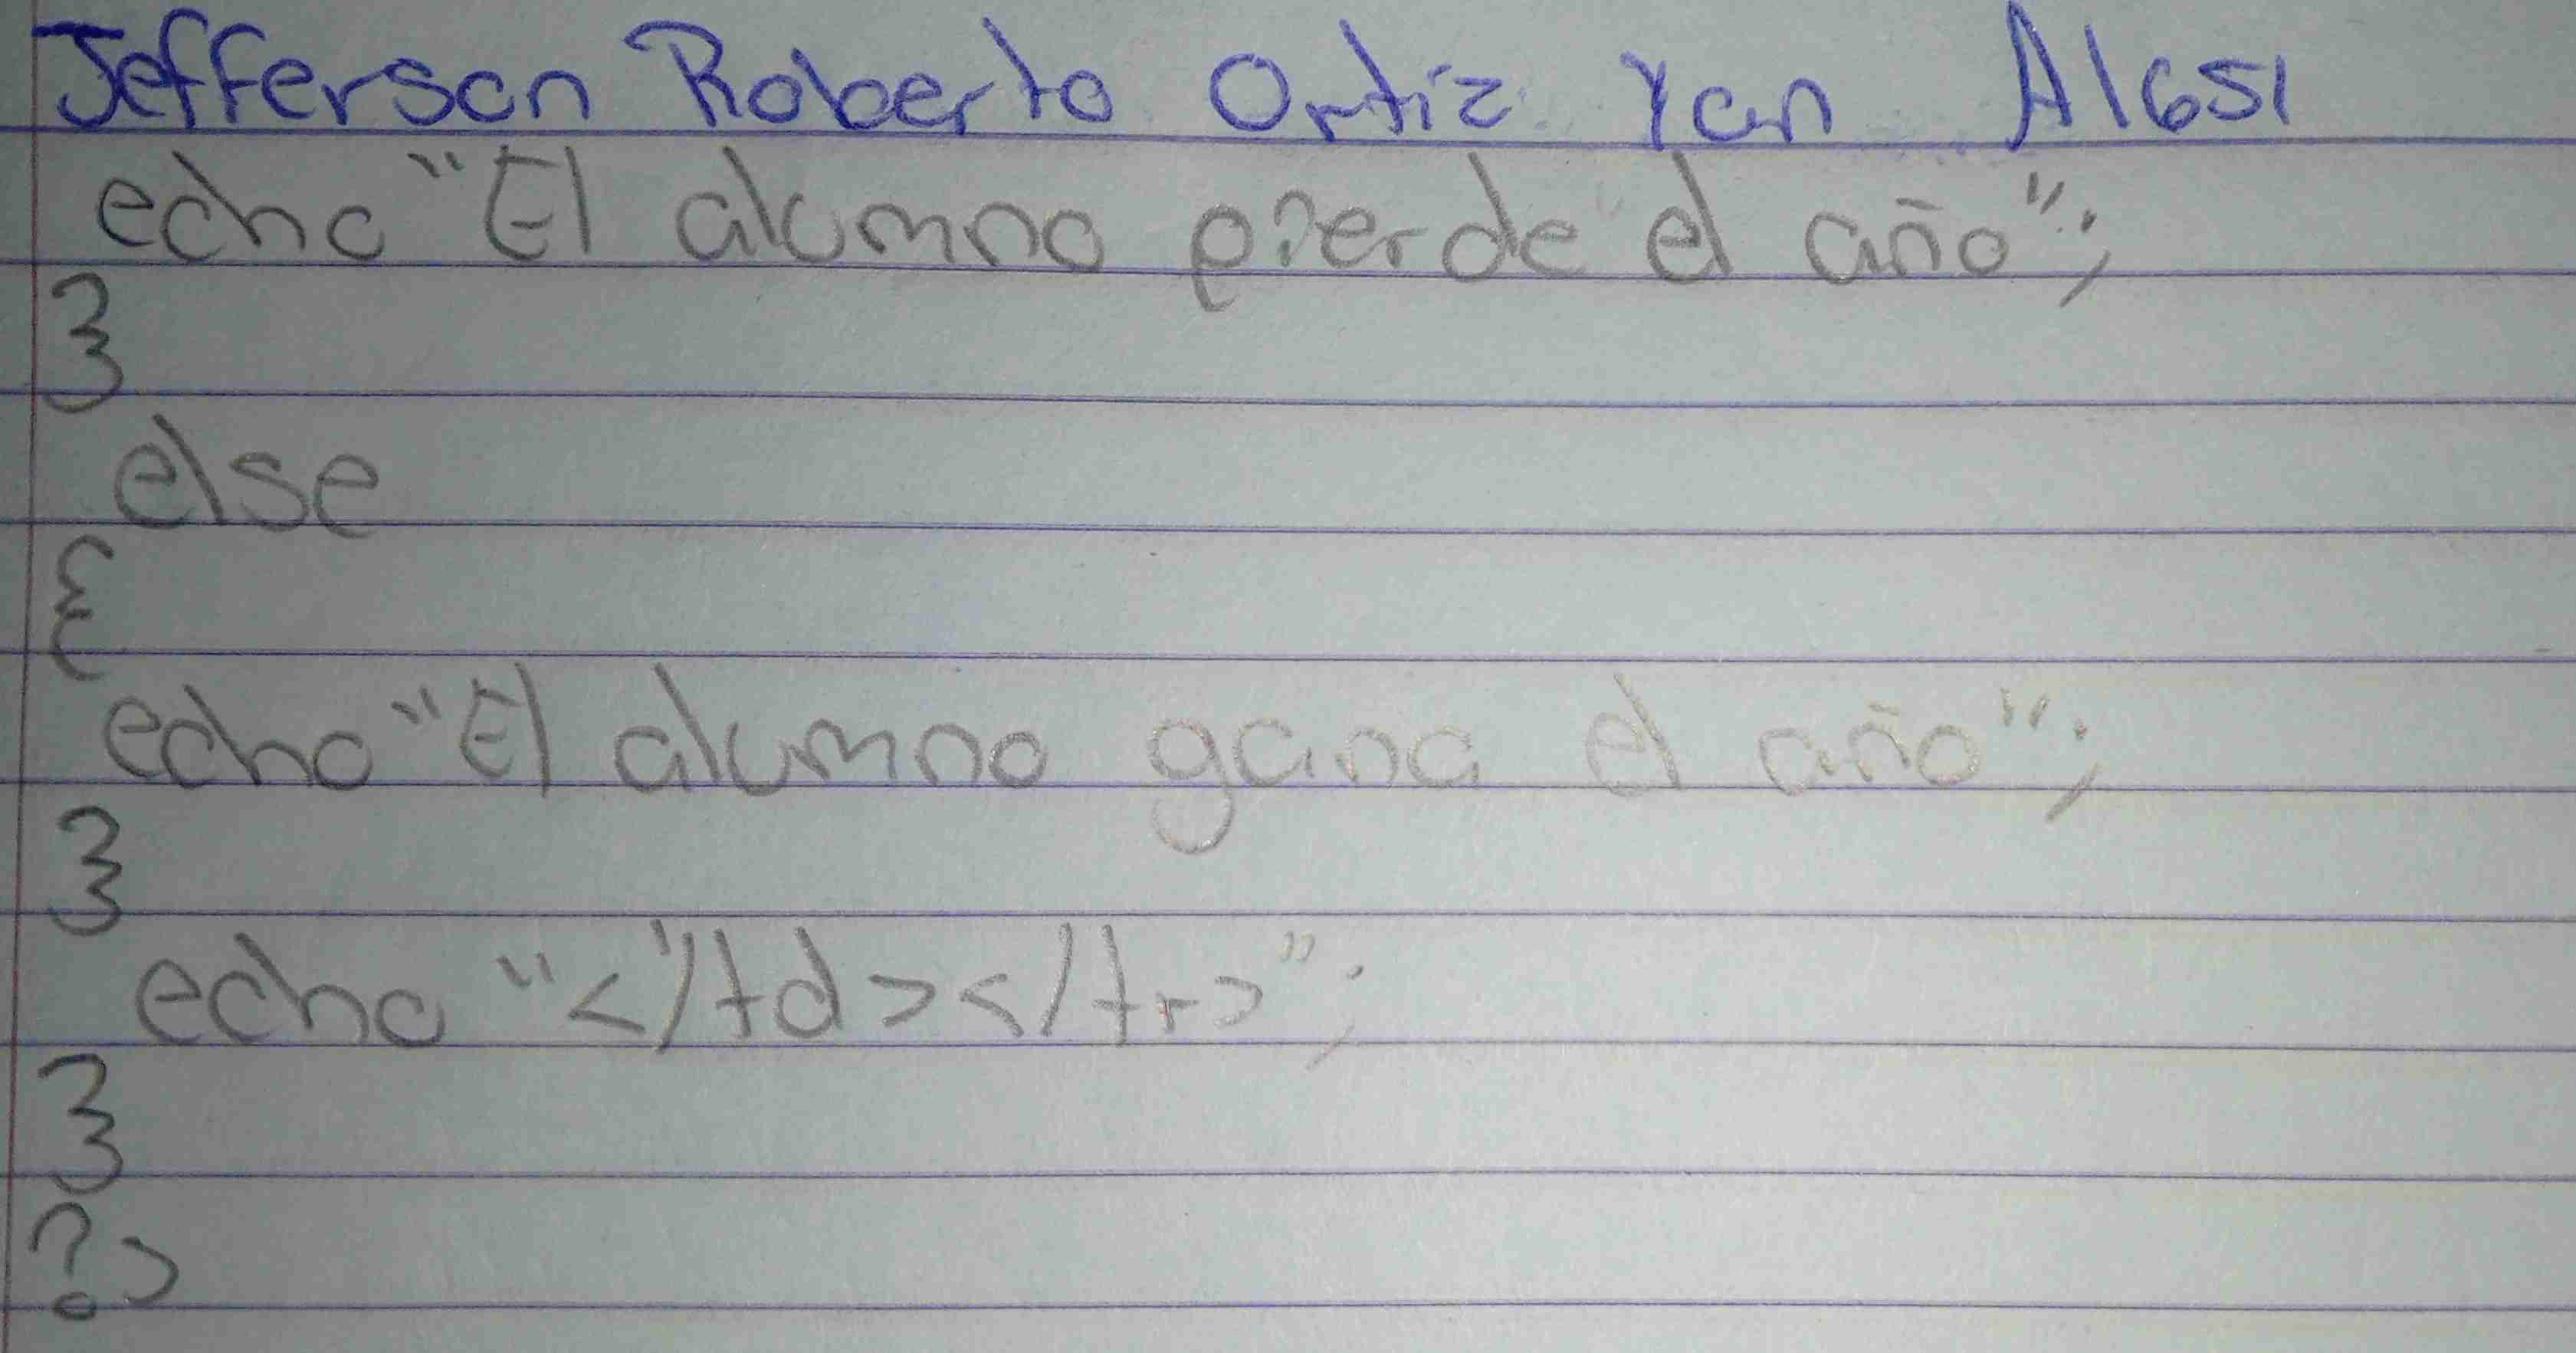 Jefferson Roberto Ortiz Yan A1651
echo "El alumno pierde el año";
}
else
{
echo "El alumno gana el año";
}
echo "</td></tr>";
}
?>